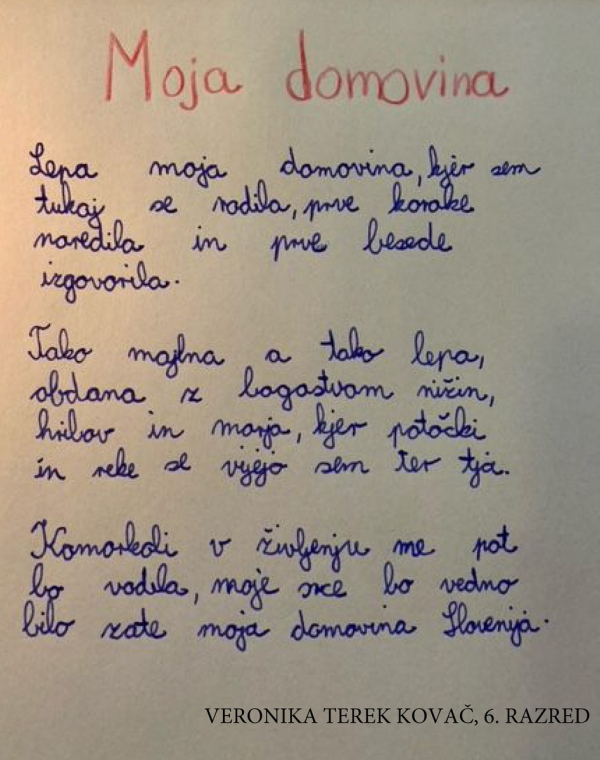 Moja domovina
Lepa moja domovina, kjer sem
tukaj se rodila, prve korake
naredila in prve besede
izgovorila.
Tako majhna a tako lepa,
obdana z bogastvom nižin,
hribov in morja, kjer potočki
in reke se vijejo sem ter tja.
Kamorkoli v življenju me pot
bo vodila, moje srce bo vedno
bilo zate moja domovina Slovenija.
VERONIKA TEREK KOVAČ, 6. RAZRED